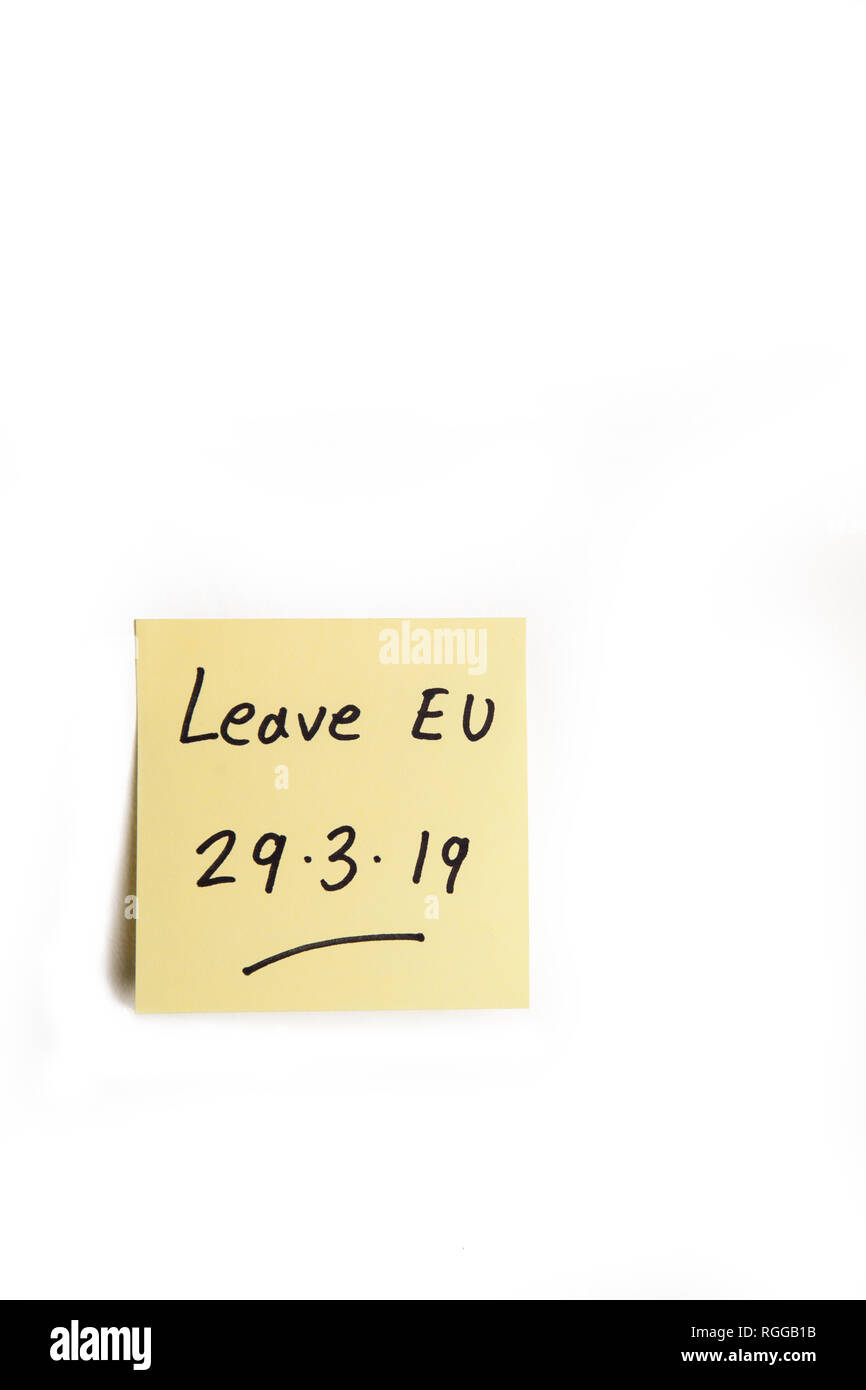 alamy
Leave EU
29.3.19
a
a
alamy
Image ID: RGGB1B
www.alamy.com